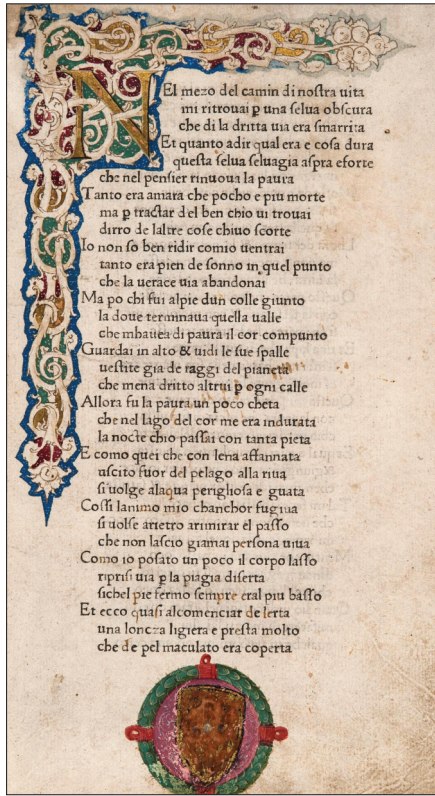 NEl mezo del camin di nostra uita
mi ritrouai ꝑ una selua obscura
che di la dritta uia era smarrita
Et quanto adir qual era e cosa dura
questa selua seluagia aspra eforte
che nel pensier rinuoua la paura
Tanto era amara che pocho e piu morte
ma ꝑ tractar del ben chio ui trouai
dirro de laltre cose chiuo scorte
Io non so ben ridir comio uentrai
tanto era pien de sonno in quel punto
che la uerace uia abandonai
Ma po chi fui alpie dun colle giunto
la doue terminaua quella ualle
che mhauea di paura il cor compunto
Guardai in alto & uidi le sue spalle
uestite gia de raggi del pianeta
che mena dritto altrui ꝑ ogni calle
Allora fu la paura un poco cheta
che nel lago del cor me era indurata
la nocte chio passai con tanta pieta
E como quei che con lena affannata
uscito fuor del pelago alla riua
si uolge alaqua perighosa e guata
Cossi lanimo mio chanchor fugiua
si uolse arietro arimirar el passo
che non lascio giamai persona uiua
Como io posato un poco il corpo lasso
riprisi uia ꝑ la piagia diserta
sichel pie fermo sempre eral piu basso
Et ecco quasi alcomenciar de lerta
una loncza ligiera e presta molto
che de pel maculato era coperta